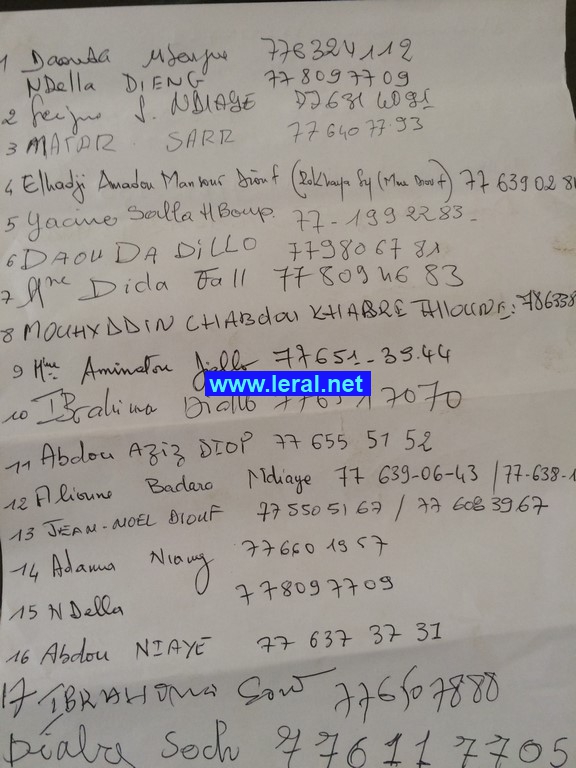 1 Daouda 776324112
NDella DIENG 77 809 77 09
2 S. NDIAYE
3 MATAR SARR 77 640 77.93
4 Elhadji Amadou Mansour Diouf (Rokhaya Sy (Mme Diouf) 77 639 02 8
5 Yacine 77-199 22 83-
6 DAOUDA DiLLO 77980 67 81
7 Dida Fall 77 809 46 83
8 CHABdou KHABRE 786338
9 Mme Aminatou Diallo 77651-39.44
www.leral.net
10 IBrahima Diallo 7070
11 Abdou AZiZ DIOP 77 655 51 52
12 Alioune Badara Ndiaye 77 639-06-43 / 77-638-1
13 JEAN-NOEL DIOUF 77 550 51 67 / 77 608 39 67
14 Adama Niang 77660 1957
15 NDella 778097709
16 Abdou NIAYE 77 637 37 31
17 Sow 776507888
Soch 776117705